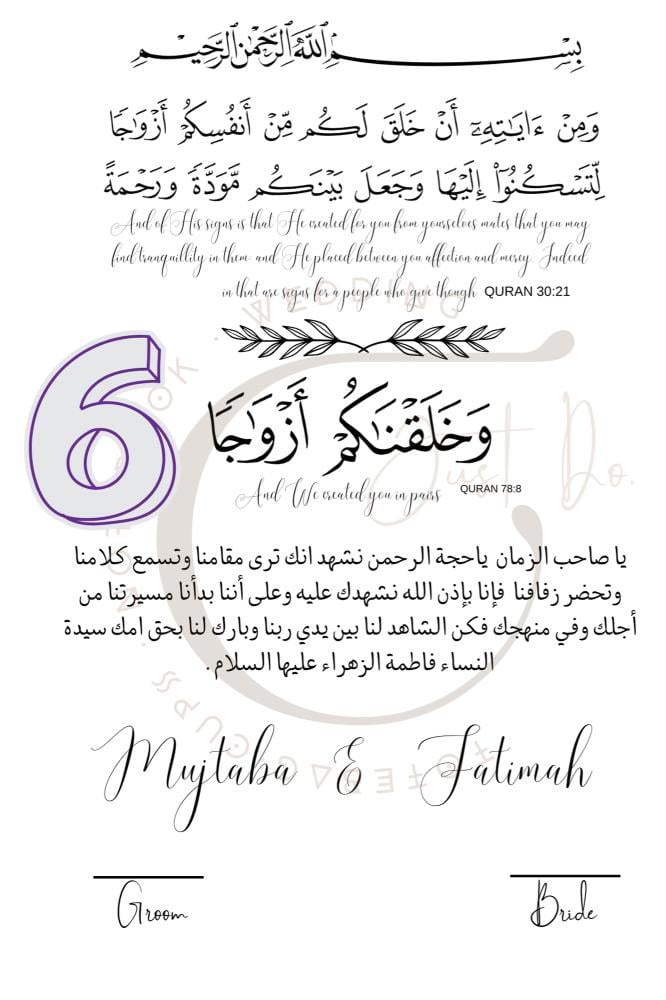 بِسْمِ ٱللَّهِ ٱلرَّحْمَٰنِ ٱلرَّحِيمِ
وَمِنْ ءَايَٰتِهِۦٓ أَنْ خَلَقَ لَكُم مِّنْ أَنفُسِكُمْ أَزْوَٰجًا
لِّتَسْكُنُوٓا۟ إِلَيْهَا وَجَعَلَ بَيْنَكُم مَّوَدَّةً وَرَحْمَةً
And of His signs is that He created for you from yourselves mates that you may
find tranquillity in them: and He placed between you affection and mercy. Indeed
in that are signs for a people who give though QURAN 30:21
WEDDING
6
وَخَلَقْنَٰكُمْ أَزْوَٰجًا
Just Do.
And We created you in pairs QURAN 78:8
يا صاحب الزمان ياحجة الرحمن نشهد انك ترى مقامنا وتسمع كلامنا
وتحضر زفافنا فإنا بإذن الله نشهدك عليه وعلى أننا بدأنا مسيرتنا من
أجلك وفي منهجك فكن الشاهد لنا بين يدي ربنا وبارك لنا بحق امك سيدة
النساء فاطمة الزهراء عليها السلام .
Mujtaba & Fatimah
Groom
Bride